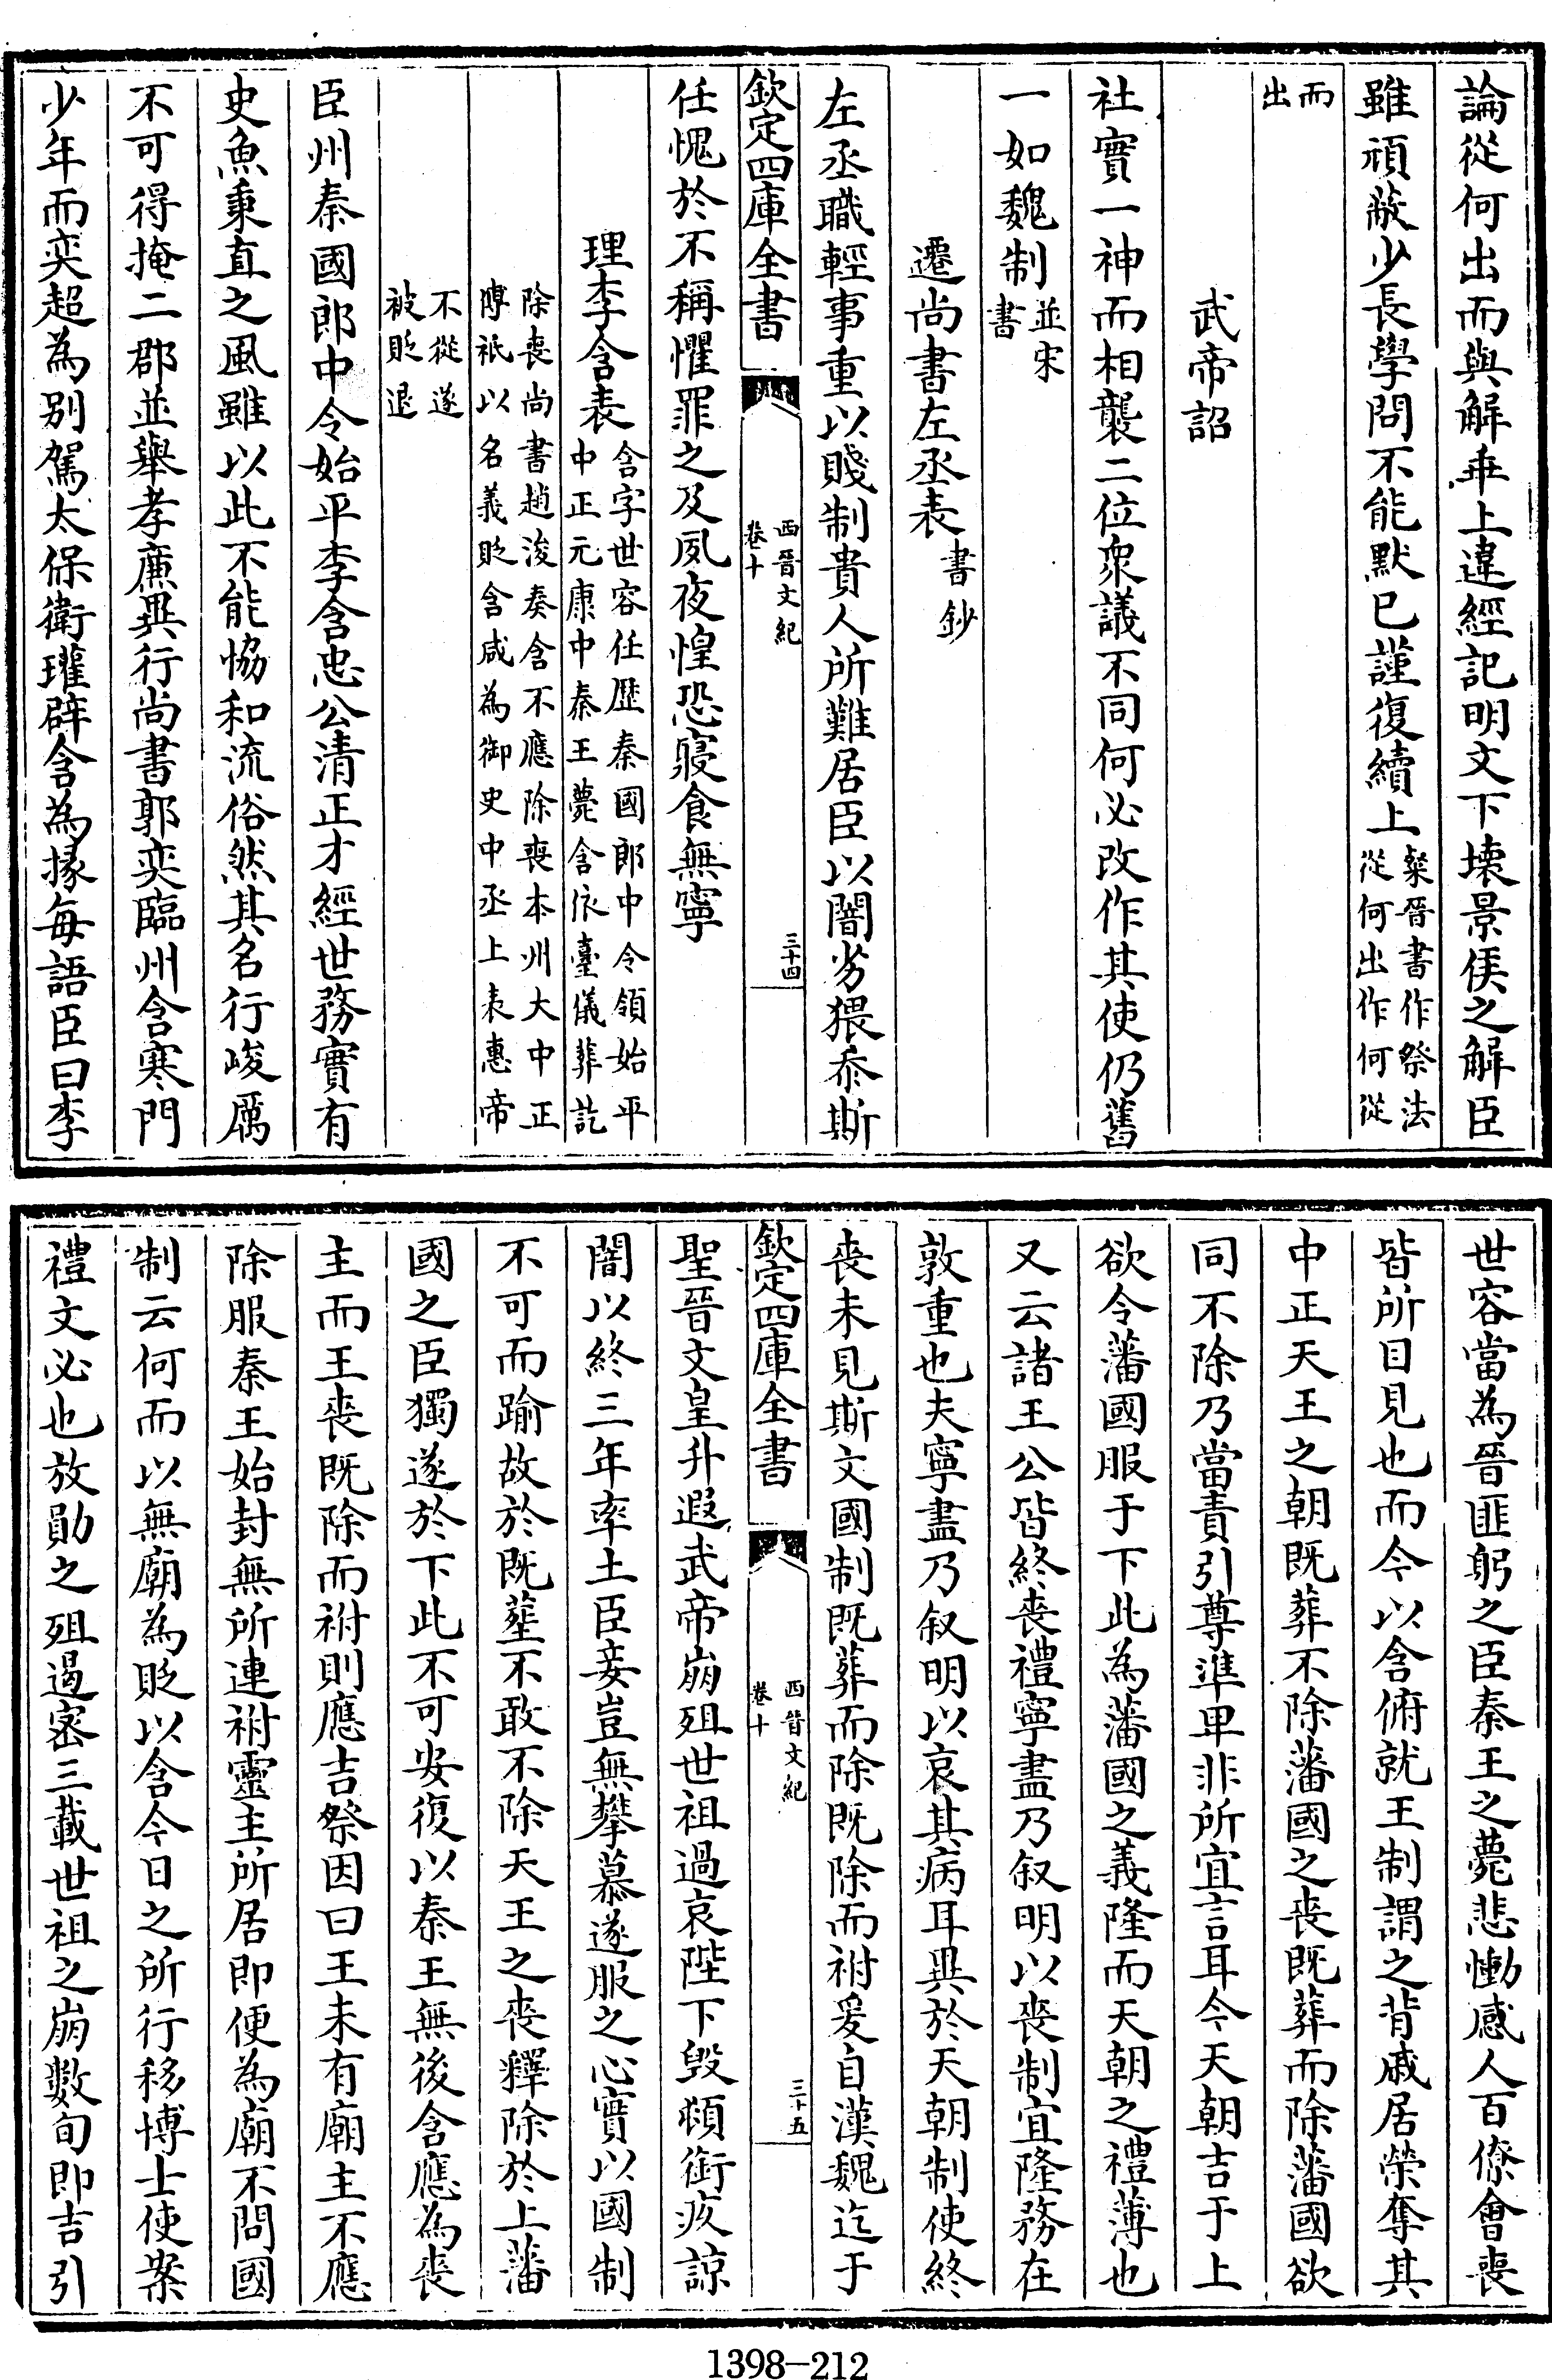 論從何出而與解垂上違經記明文下壊景侯之解臣
雖頑蔽少長學問不能默已謹復續上粲晉書作祭法從何出作何從
而出
武帝詔
社實一神而相襲二位衆議不同何必改作其使仍舊
一如魏制並宋書
遷尚書左丞表書鈔
左丞職輕事重以賤制貴人所難居臣以闇劣猥忝斯
欽定四庫全書
西晉文紀
卷十
三十四
任愧於不稱懼罪之及夙夜惶恐寢食無寧
理李含表含字世容任歷秦國郎中令領始平中正元康中秦王薨含依臺儀葬訖
除喪尚書趙浚奏含不應除喪本州大中正傅祗以名義貶含咸為御史中丞上表惠帝
不從遂被貶退
臣州秦國郎中令始平李含忠公清正才經世務實有
史魚秉直之風雖以此不能恊和流俗然其名行峻厲
不可得掩二郡並舉孝廉異行尚書郭奕臨州含寒門
少年而奕超為别駕太保衛瓘辟含為掾每語臣曰李
世容當為晉匪躬之臣秦王之薨悲慟感人百僚會喪
皆所目見也而今以含俯就王制謂之背戚居榮奪其
中正天王之朝既葬不除藩國之喪既葬而除藩國欲
同不除乃當責引尊準卑非所宜言耳今天朝吉于上
欲令藩國服于下此為藩國之義隆而天朝之禮薄也
又云諸王公皆終喪禮寧盡乃叙明以喪制宜隆務在
敦重也夫寧盡乃叙明以哀其病耳異於天朝制使終
喪未見斯文國制既葬而除既除而祔爰自漢魏迄于
欽定四庫全書
西晉文紀
卷十
三十五
聖晉文皇升遐武帝崩殂世祖過哀陛下毁頓銜疚諒
闇以終三年率土臣妾豈無攀慕遂服之心實以國制
不可而踰故於既塟不敢不除天王之喪釋除於上藩
國之臣獨遂於下此不可安復以秦王無後含應為喪
主而王喪既除而祔則應吉祭因曰王未有廟主不應
除服秦王始封無所連祔靈主所居即便為廟不問國
制云何而以無廟為貶以含今日之所行移博士使案
禮文必也放勛之殂遏密三載世祖之崩數旬即吉引
1398-212